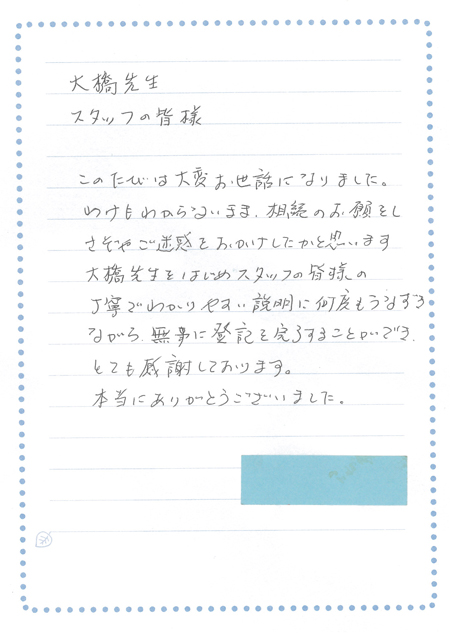 大橋先生
スタッフの皆様
このたびは大変お世話になりました。
わけもわからないまま、相続のお願をし
さぞやご迷惑をおかけしたかと思います
大橋先生をはじめスタッフの皆様の
丁寧でわかりやすい説明に何度もうなずき
ながら、無事に登記を完了することができ、
とても感謝しております。
本当にありがとうございました。